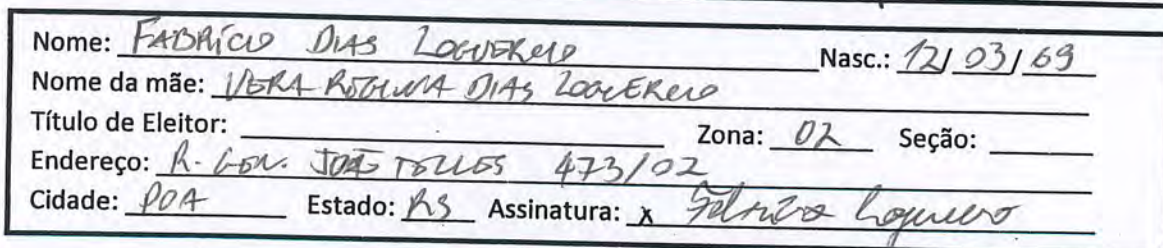 Nome: FABRÍCIO DIAS LOGUERCIO Nasc.: 12/03/69
Nome da mãe: VERA REGINA DIAS LOGUERCIO
Título de Eleitor: Zona: 02 Seção:
Endereço: R. GEN. JOÃO TELLES 473/02
Cidade: POA Estado: RS Assinatura: x Fabrício Loguercio